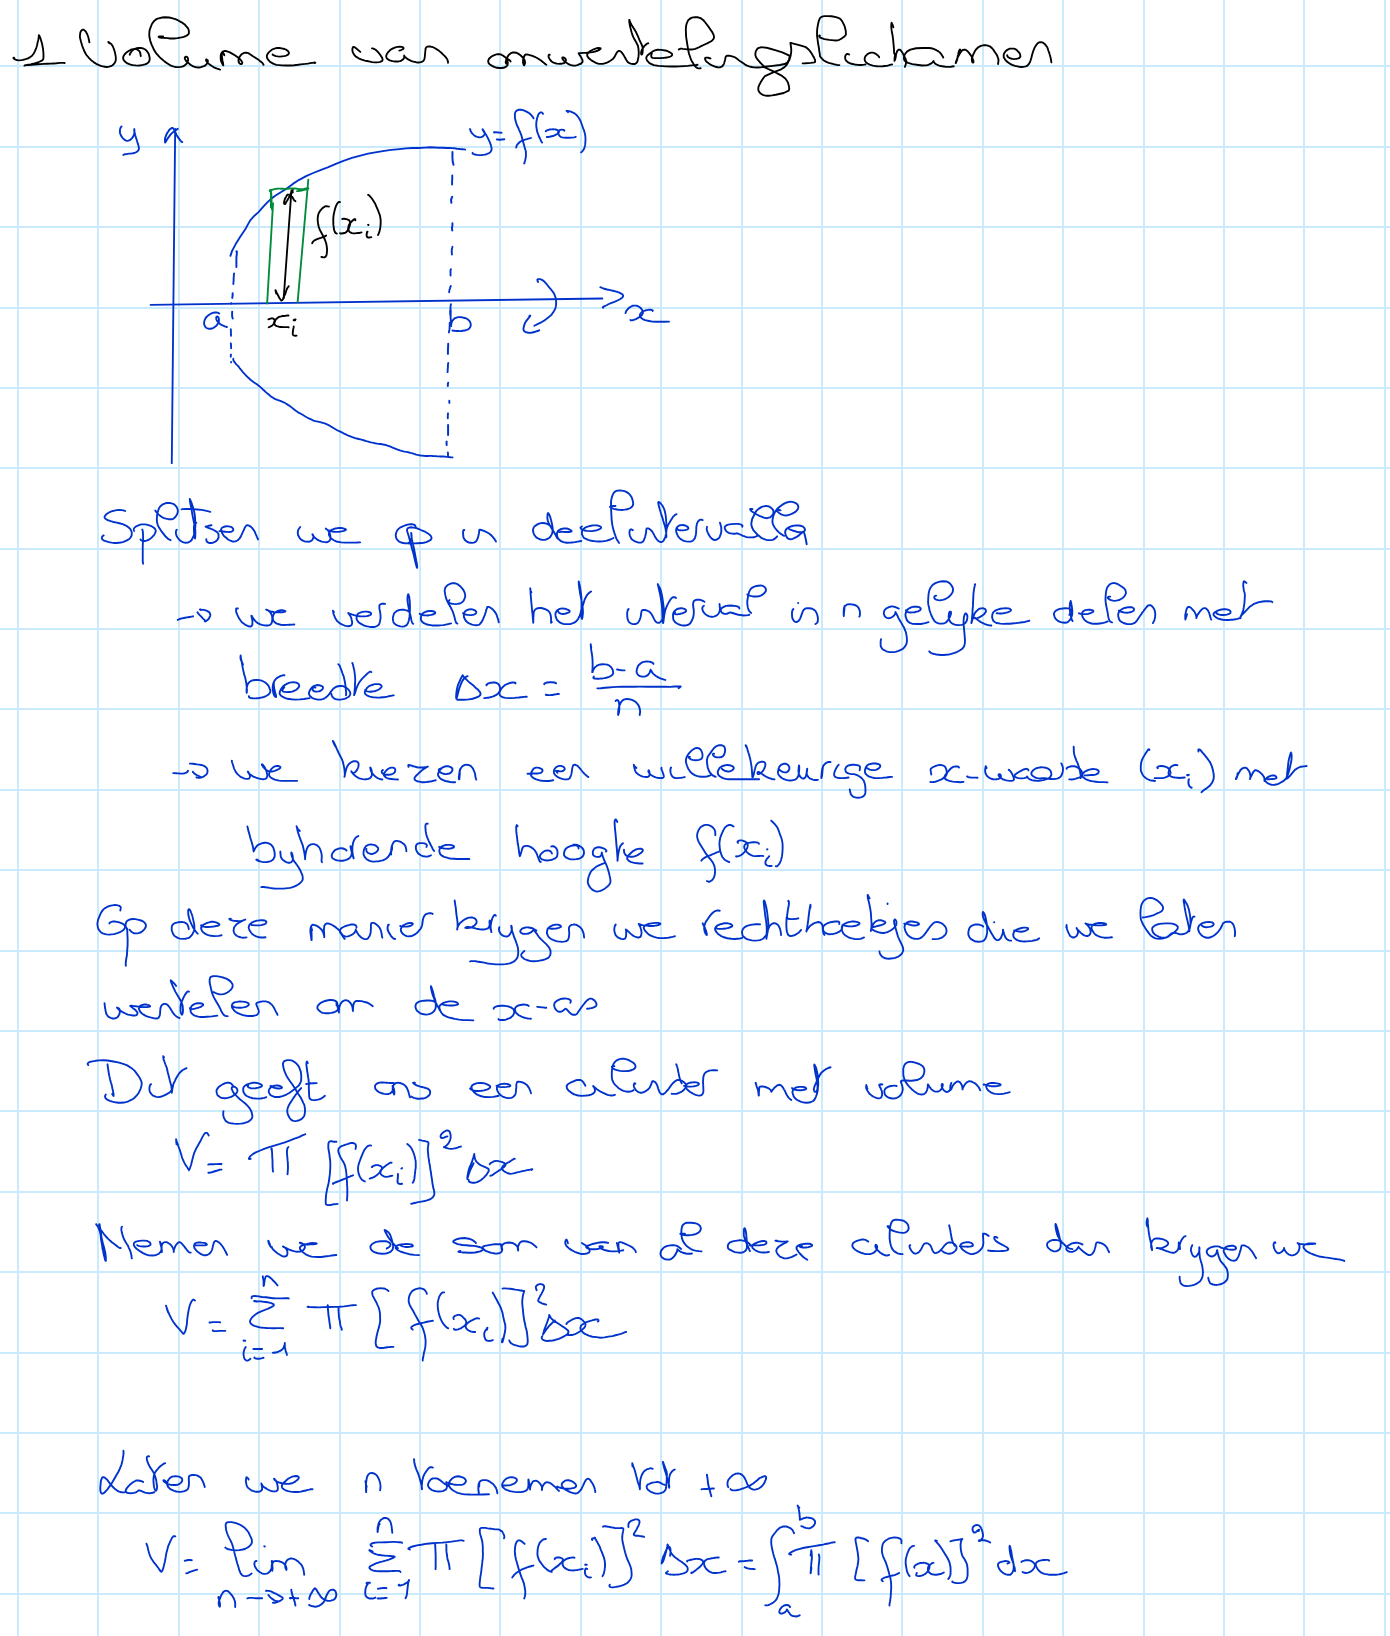 1 Volume van omwentelingslichamen
y
y=f(x)
f(xᵢ)
a xᵢ b x
Splitsen we op in deelintervallen
→ we verdelen het interval in n gelijke delen met
breedte Δx = (b-a)/n
→ we kiezen een willekeurige x-waarde (xᵢ) met
bijhorende hoogte f(xᵢ)
Op deze manier krijgen we rechthoekjes die we laten
wentelen om de x-as
Dit geeft ons een cilinder met volume
V = π [f(xᵢ)]² Δx
Nemen we de som van al deze cilinders dan krijgen we
V = Σᵢ₌₁ⁿ π [f(xᵢ)]² Δx
Laten we n toenemen tot +∞
V = lim n→+∞ Σᵢ₌₁ⁿ π [f(xᵢ)]² Δx = ∫ₐᵇ π [f(x)]² dx